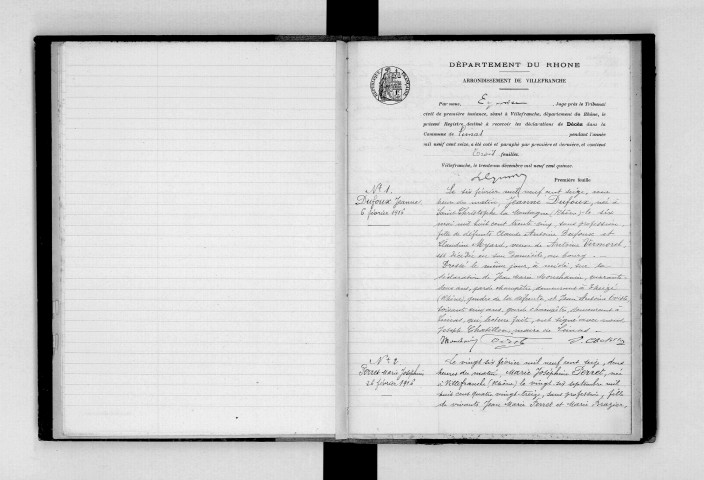 DÉPARTEMENT DU RHONE
ARRONDISSEMENT DE VILLEFRANCHE
Par nous, Juge près le Tribunal
civil de première instance, séant à Villefranche, département du Rhône, le
présent Registre, destiné à recevoir les déclarations de Décès dans la
Commune de Limas pendant l'année
mil neuf cent seize, a été coté et paraphé par première et dernière, et contient
trois feuilles.
Villefranche, le trente-un décembre mil neuf cent quinze.
Première feuille
N° 1.
Dufoux Jeanne
6 février 1916
Le six février mil neuf cent seize, onze
heures du matin, Jeanne Dufoux, née à
Saint Christophe la Montagne (Rhône) le six
mai mil huit cent trente-cinq, sans profession,
fille de défunts Claude Antoine Dufoux et
Claudine Myard, veuve de Antoine Vermorel,
est décédée en son domicile, au bourg. —
Dressé le même jour, à midi, sur la
déclaration de Jean Marie quarante-
deux ans, garde champêtre, demeurant à
(Rhône), gendre de la défunte, et Jean Antoine
soixante cinq ans, garde champêtre, demeurant à
Limas, qui, lecture faite, ont signé avec nous
Joseph Chatillon, maire de Limas. —
N° 2
Perret Marie Joséphine
26 février 1916
Le vingt six février mil neuf cent seize, deux
heures du matin, Marie Joséphine Perret, née
à Villefranche (Rhône) le vingt six septembre mil
huit cent quatre vingt-treize, sans profession, fille
de vivants Jean Marie Perret et Marie Brazier,